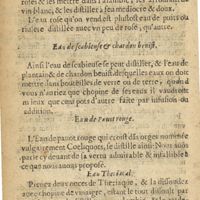 roses & les mettre dans l'alambic, & les arrouser de
vin blanc, & les distiller à feu mediocre & doux.
L'eau rose qu'on vend est plustost eau de puits ou
riuiere distillée auec vn peu de rose, qu'autre.
Eau de scabieuse & chardon benist.
Ainsi l'eau de scabieuse se peut distiller, & l'eau de
plantain & de chardon benist desquelles eaux on doit
mettre dans bouteilles de verre ou de terre; quand
vous n'auriez que chopine de ses eaux il vaudroit
mieux que cinq pots d'autre faite par infusion ou
addition.
Eau de Pauot rouge.
L'Eau de pauot rouge qui croist dãs orges nommée
vulgairement Coclicquots, se distille ainsi: Nous auõs
parlé cy deuant de sa vertu admirable & infaillible à
ce que nous auons proposé.
Eau Theriacal.
Prenez deux onces de Theriaque, & la dissoudez
auec chopine de vinaigre, estant le tout dissoult par